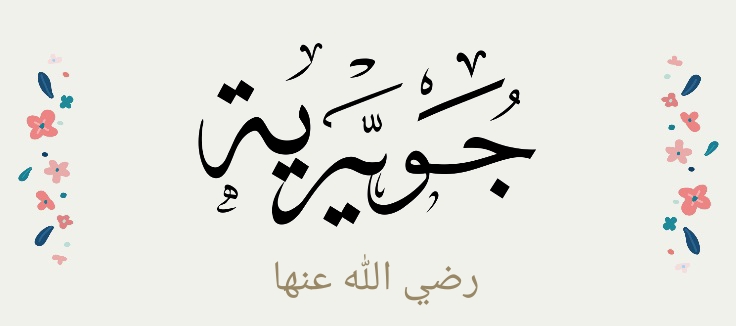 جُوَيْرِيَّة
رضي الله عنها